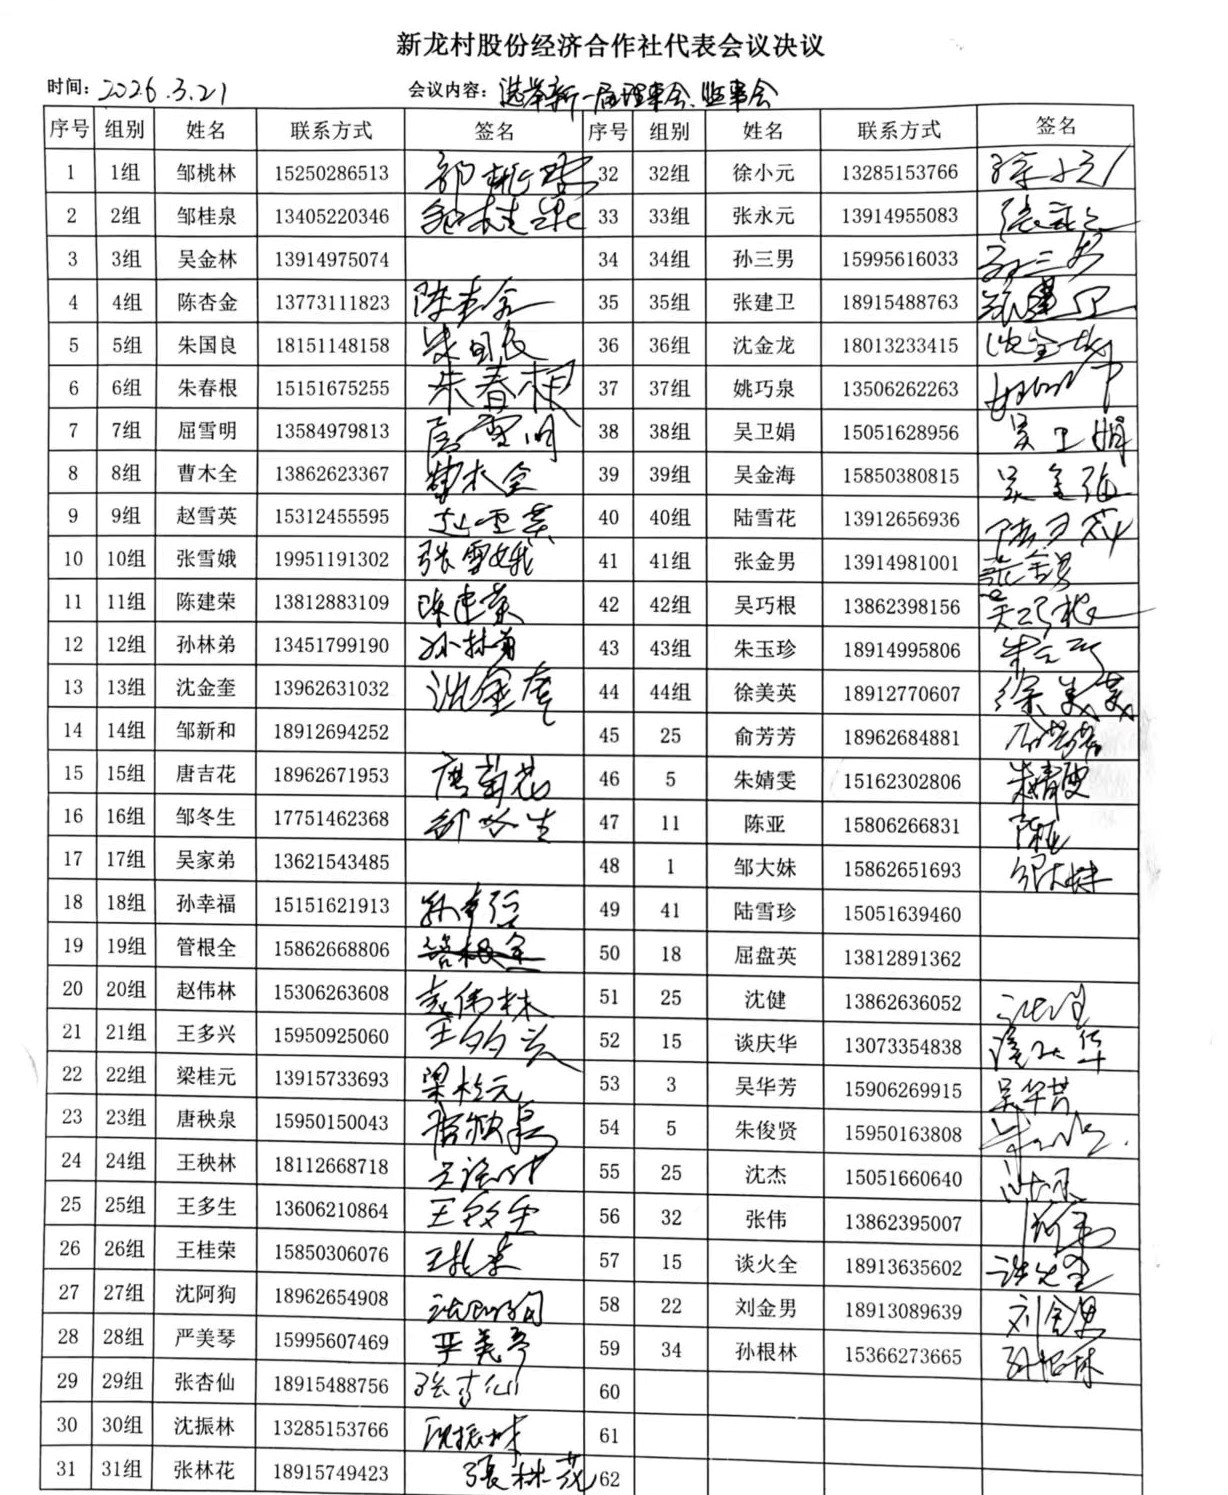 新龙村股份经济合作社代表会议决议
时间: 2026.3.21 会议内容: 选举新一届理事会、监事会
序号 组别 姓名 联系方式 签名 序号 组别 姓名 联系方式 签名
1 1组 邹桃林 15250286513 邹桃林 32 32组 徐小元 13285153766 徐小元
2 2组 邹桂泉 13405220346 邹桂泉 33 33组 张永元 13914955083 张永元
3 3组 吴金林 13914975074 34 34组 孙三男 15995616033 孙三男
4 4组 陈杏金 13773111823 陈杏金 35 35组 张建卫 18915488763 张建卫
5 5组 朱国良 18151148158 朱国良 36 36组 沈金龙 18013233415 沈金龙
6 6组 朱春根 15151675255 朱春根 37 37组 姚巧泉 13506262263
7 7组 屈雪明 13584979813 屈雪明 38 38组 吴卫娟 15051628956 吴卫娟
8 8组 曹木全 13862623367 曹木全 39 39组 吴金海 15850380815 吴金海
9 9组 赵雪英 15312455595 赵雪英 40 40组 陆雪花 13912656936 陆雪花
10 10组 张雪娥 19951191302 张雪娥 41 41组 张金男 13914981001 张金男
11 11组 陈建荣 13812883109 陈建荣 42 42组 吴巧根 13862398156 吴巧根
12 12组 孙林弟 13451799190 孙林弟 43 43组 朱玉珍 18914995806 朱玉珍
13 13组 沈金奎 13962631032 沈金奎 44 44组 徐美英 18912770607 徐美英
14 14组 邹新和 18912694252 45 25 俞芳芳 18962684881 俞芳芳
15 15组 唐吉花 18962671953 唐菊花 46 5 朱婧雯 15162302806 朱婧雯
16 16组 邹冬生 17751462368 邹冬生 47 11 陈亚 15806266831 陈亚
17 17组 吴家弟 13621543485 48 1 邹大妹 15862651693 邹大妹
18 18组 孙幸福 15151621913 孙幸福 49 41 陆雪珍 15051639460
19 19组 管根全 15862668806 管根全 50 18 屈盘英 13812891362
20 20组 赵伟林 15306263608 赵伟林 51 25 沈健 13862636052 沈健
21 21组 王多兴 15950925060 王多兴 52 15 谈庆华 13073354838 谈庆华
22 22组 梁桂元 13915733693 梁桂元 53 3 吴华芳 15906269915 吴华芳
23 23组 唐秧泉 15950150043 唐秧泉 54 5 朱俊贤 15950163808
24 24组 王秧林 18112668718 王秧林 55 25 沈杰 15051660640 沈杰
25 25组 王多生 13606210864 王多生 56 32 张伟 13862395007 张伟
26 26组 王桂荣 15850306076 王桂荣 57 15 谈火全 18913635602 谈火全
27 27组 沈阿狗 18962654908 沈阿狗 58 22 刘金男 18913089639 刘金男
28 28组 严美琴 15995607469 严美琴 59 34 孙根林 15366273665 孙根林
29 29组 张杏仙 18915488756 张杏仙 60
30 30组 沈振林 13285153766 沈振林 61
31 31组 张林花 18915749423 張林花 62